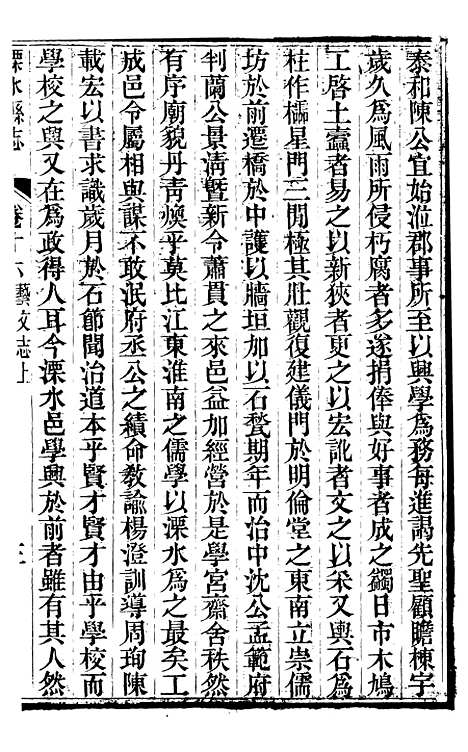 泰和陳公宜始涖郡事所至以興學為務每進謁先聖顧瞻棟宇
歲久為風雨所侵朽腐者多遂捐俸與好事者成之蠲日市木鳩
工啓土蠧者易之以新狹者更之以宏訛者文之以采又輿石為
柱作櫺星門三閒極其壯觀復建儀門於明倫堂之東南立崇儒
坊於前遷橋於中護以牆垣加以石甃期年而治中沈公孟範府
判蘭公景清曁新令蕭貫之來邑益加經營於是學宮齋舍秩然
有序廟貌丹青煥乎莫比江東淮南之儒學以溧水為之最矣工
成邑令屬相與謀不敢泯府丞公之績命敎諭楊澄訓導周珣陳
載宏以書求識歲月於石節聞治道本乎賢才賢才由乎學校而
學校之興又在為政得人耳今溧水邑學興於前者雖有其人然
溧水縣志
卷十六藝文志上
三